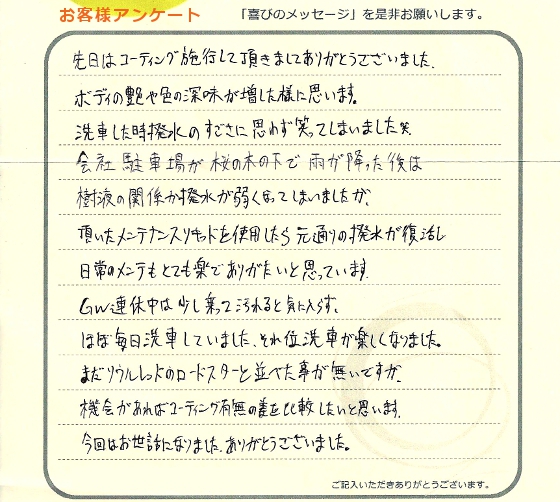 お客様アンケート 「喜びのメッセージ」を是非お願いします。
先日はコーティング施行して頂きましてありがとうございました。
ボディの艶や色の深味が増した様に思います。
洗車した時撥水のすごさに思わず笑ってしまいました笑
会社駐車場が桜の木の下で雨が降った後は
樹液の関係か撥水が弱くなってしまいましたが、
頂いたメンテナンスリキッドを使用したら元通りの撥水が復活し
日常のメンテもとても楽でありがたいと思っています。
GW連休中は少し乗って汚れると気に入らず、
ほぼ毎日洗車していました、それ位洗車が楽しくなりました。
まだソウルレッドのロードスターと並べた事が無いですが、
機会があればコーティング有無の差を比較したいと思います。
今回はお世話になりました、ありがとうございました。
ご記入いただきありがとうございます。